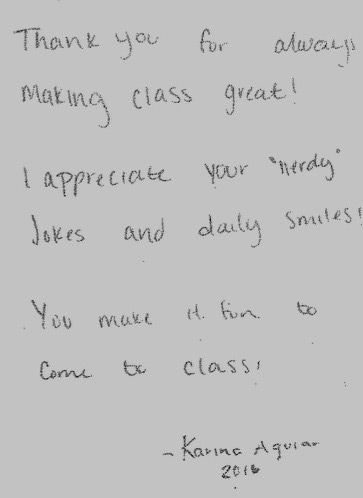 Thank you for always
making class great!
I appreciate your "nerdy"
Jokes and daily smiles!
You make it fun to
come to class!
- Karina Aguiar
2016